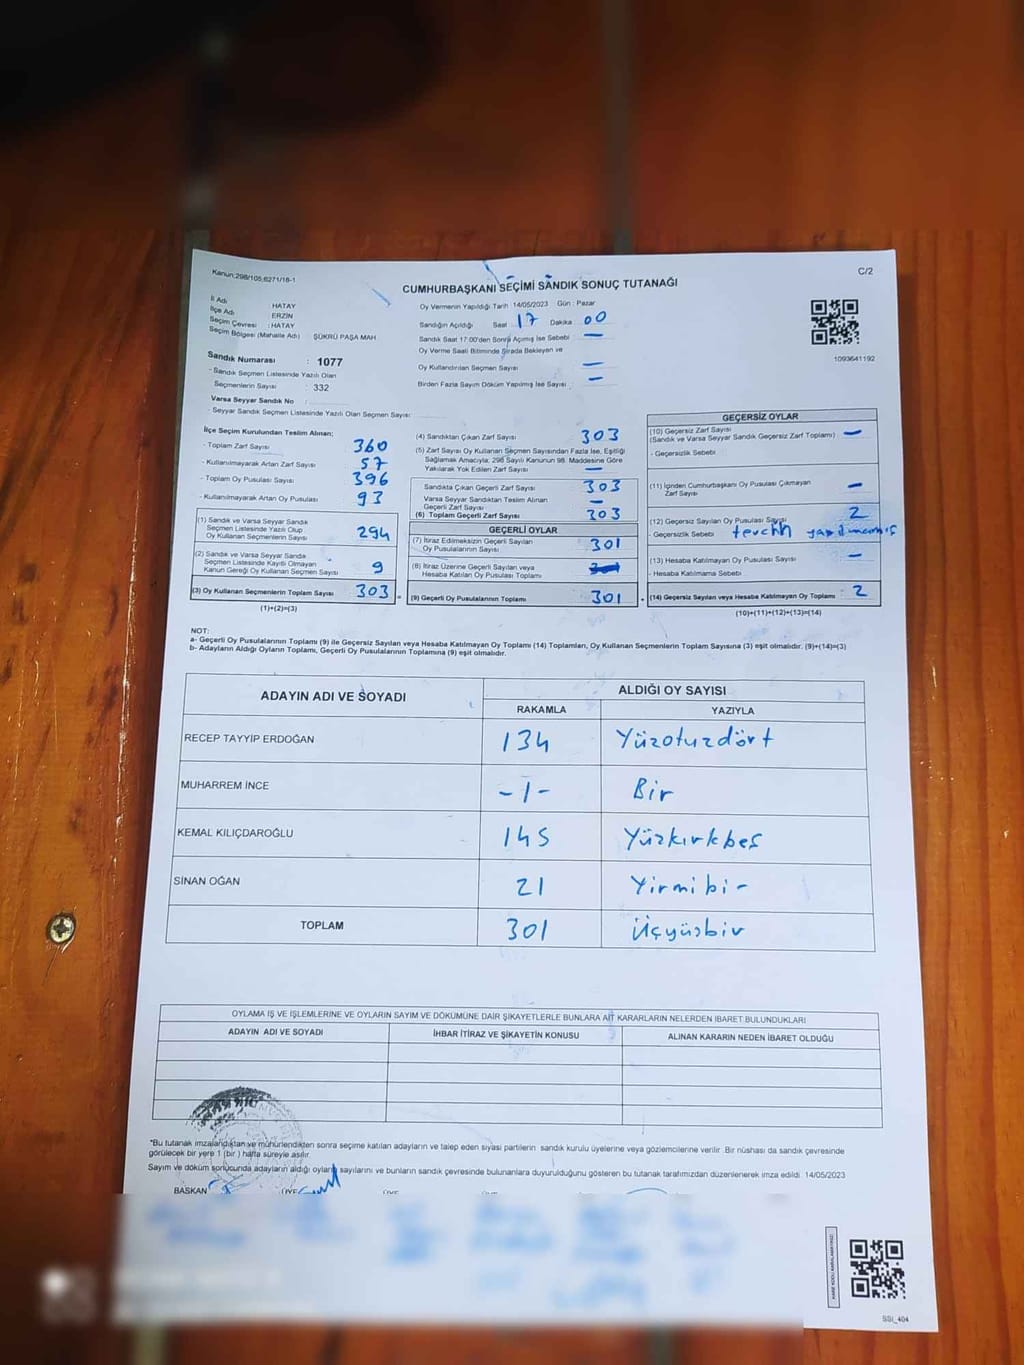 Kanun:298/105;6271/18-1
C/2
CUMHURBAŞKANI SEÇİMİ SANDIK SONUÇ TUTANAĞI
İl Adı : HATAY
İlçe Adı : ERZİN
Seçim Çevresi : HATAY
Seçim Bölgesi (Mahalle Adı) ŞÜKRÜ PAŞA MAH
Sandık Numarası : 1077
- Sandık Seçmen Listesinde Yazılı Olan
Seçmenlerin Sayısı : 332
Varsa Seyyar Sandık No :
- Seyyar Sandık Seçmen Listesinde Yazılı Olan Seçmen Sayısı:
Oy Vermenin Yapıldığı Tarih :14/05/2023 Gün : Pazar
Sandığın Açıldığı Saat 17 Dakika 00
Sandık Saat 17:00'den Sonra Açılmış İse Sebebi —
Oy Verme Saati Bitiminde Sırada Bekleyen ve
Oy Kullandırılan Seçmen Sayısı —
Birden Fazla Sayım Döküm Yapılmış İse Sayısı —
1093641192
İlçe Seçim Kurulundan Teslim Alınan;
- Toplam Zarf Sayısı 360
- Kullanılmayarak Artan Zarf Sayısı 57
- Toplam Oy Pusulası Sayısı 396
- Kullanılmayarak Artan Oy Pusulası 93
(1) Sandık ve Varsa Seyyar Sandık
Seçmen Listesinde Yazılı Olup
Oy Kullanan Seçmenlerin Sayısı 294
(2) Sandık ve Varsa Seyyar Sandık
Seçmen Listesinde Kaydı Olmayan
Kanun Gereği Oy Kullanan Seçmen Sayısı 9
(3) Oy Kullanan Seçmenlerin Toplam Sayısı 303
(1)+(2)=(3)
(4) Sandıktan Çıkan Zarf Sayısı 303
(5) Zarf Sayısı Oy Kullanan Seçmen Sayısından Fazla İse, Eşitliği
Sağlamak Amacıyla; 298 Sayılı Kanunun 98. Maddesine Göre
Yakılarak Yok Edilen Zarf Sayısı —
Sandıkta Çıkan Geçerli Zarf Sayısı 303
Varsa Seyyar Sandıktan Teslim Alınan
Geçerli Zarf Sayısı —
(6) Toplam Geçerli Zarf Sayısı 303
GEÇERLİ OYLAR
(7) İtiraz Edilmeksizin Geçerli Sayılan
Oy Pusulalarının Sayısı 301
(8) İtiraz Üzerine Geçerli Sayılan veya
Hesaba Katılan Oy Pusulası Toplamı
= (9) Geçerli Oy Pusulalarının Toplamı 301 +
GEÇERSİZ OYLAR
(10) Geçersiz Zarf Sayısı
(Sandık ve Varsa Seyyar Sandık Geçersiz Zarf Toplamı) —
- Geçersizlik Sebebi
(11) İçinden Cumhurbaşkanı Oy Pusulası Çıkmayan
Zarf Sayısı —
(12) Geçersiz Sayılan Oy Pusulası Sayısı 2
- Geçersizlik Sebebi tercih yapılmamış
(13) Hesaba Katılmayan Oy Pusulası Sayısı —
- Hesaba Katılmama Sebebi
(14) Geçersiz Sayılan veya Hesaba Katılmayan Oy Toplamı : 2
(10)+(11)+(12)+(13)=(14)
NOT:
a- Geçerli Oy Pusulalarının Toplamı (9) ile Geçersiz Sayılan veya Hesaba Katılmayan Oy Toplamı (14) Toplamları, Oy Kullanan Seçmenlerin Toplam Sayısına (3) eşit olmalıdır. (9)+(14)=(3)
b- Adayların Aldığı Oyların Toplamı, Geçerli Oy Pusulalarının Toplamına (9) eşit olmalıdır.
ADAYIN ADI VE SOYADI ALDIĞI OY SAYISI
RAKAMLA YAZIYLA
RECEP TAYYİP ERDOĞAN 134 Yüzotuzdört
MUHARREM İNCE -1- Bir
KEMAL KILIÇDAROĞLU 145 Yüzkırkbeş
SİNAN OĞAN 21 Yirmibir
TOPLAM 301 Üçyüzbir
OYLAMA İŞ VE İŞLEMLERİNE VE OYLARIN SAYIM VE DÖKÜMÜNE DAİR ŞİKAYETLERLE BUNLARA AİT KARARLARIN NELERDEN İBARET BULUNDUKLARI
ADAYIN ADI VE SOYADI İHBAR İTİRAZ VE ŞİKAYETİN KONUSU ALINAN KARARIN NEDEN İBARET OLDUĞU
*Bu tutanak imzalandıktan ve mühürlendikten sonra seçime katılan adayların ve talep eden siyasi partilerin sandık kurulu üyelerine veya gözlemcilerine verilir. Bir nüshası da sandık çevresinde
görülecek bir yere 1 (bir ) hafta süreyle asılır.
Sayım ve döküm sonucunda adayların aldığı oyların sayılarını ve bunların sandık çevresinde bulunanlara duyurulduğunu gösteren bu tutanak tarafımızdan düzenlenerek imza edildi. 14/05/2023
BAŞKAN ÜYE ÜYE ÜYE
SSI_404